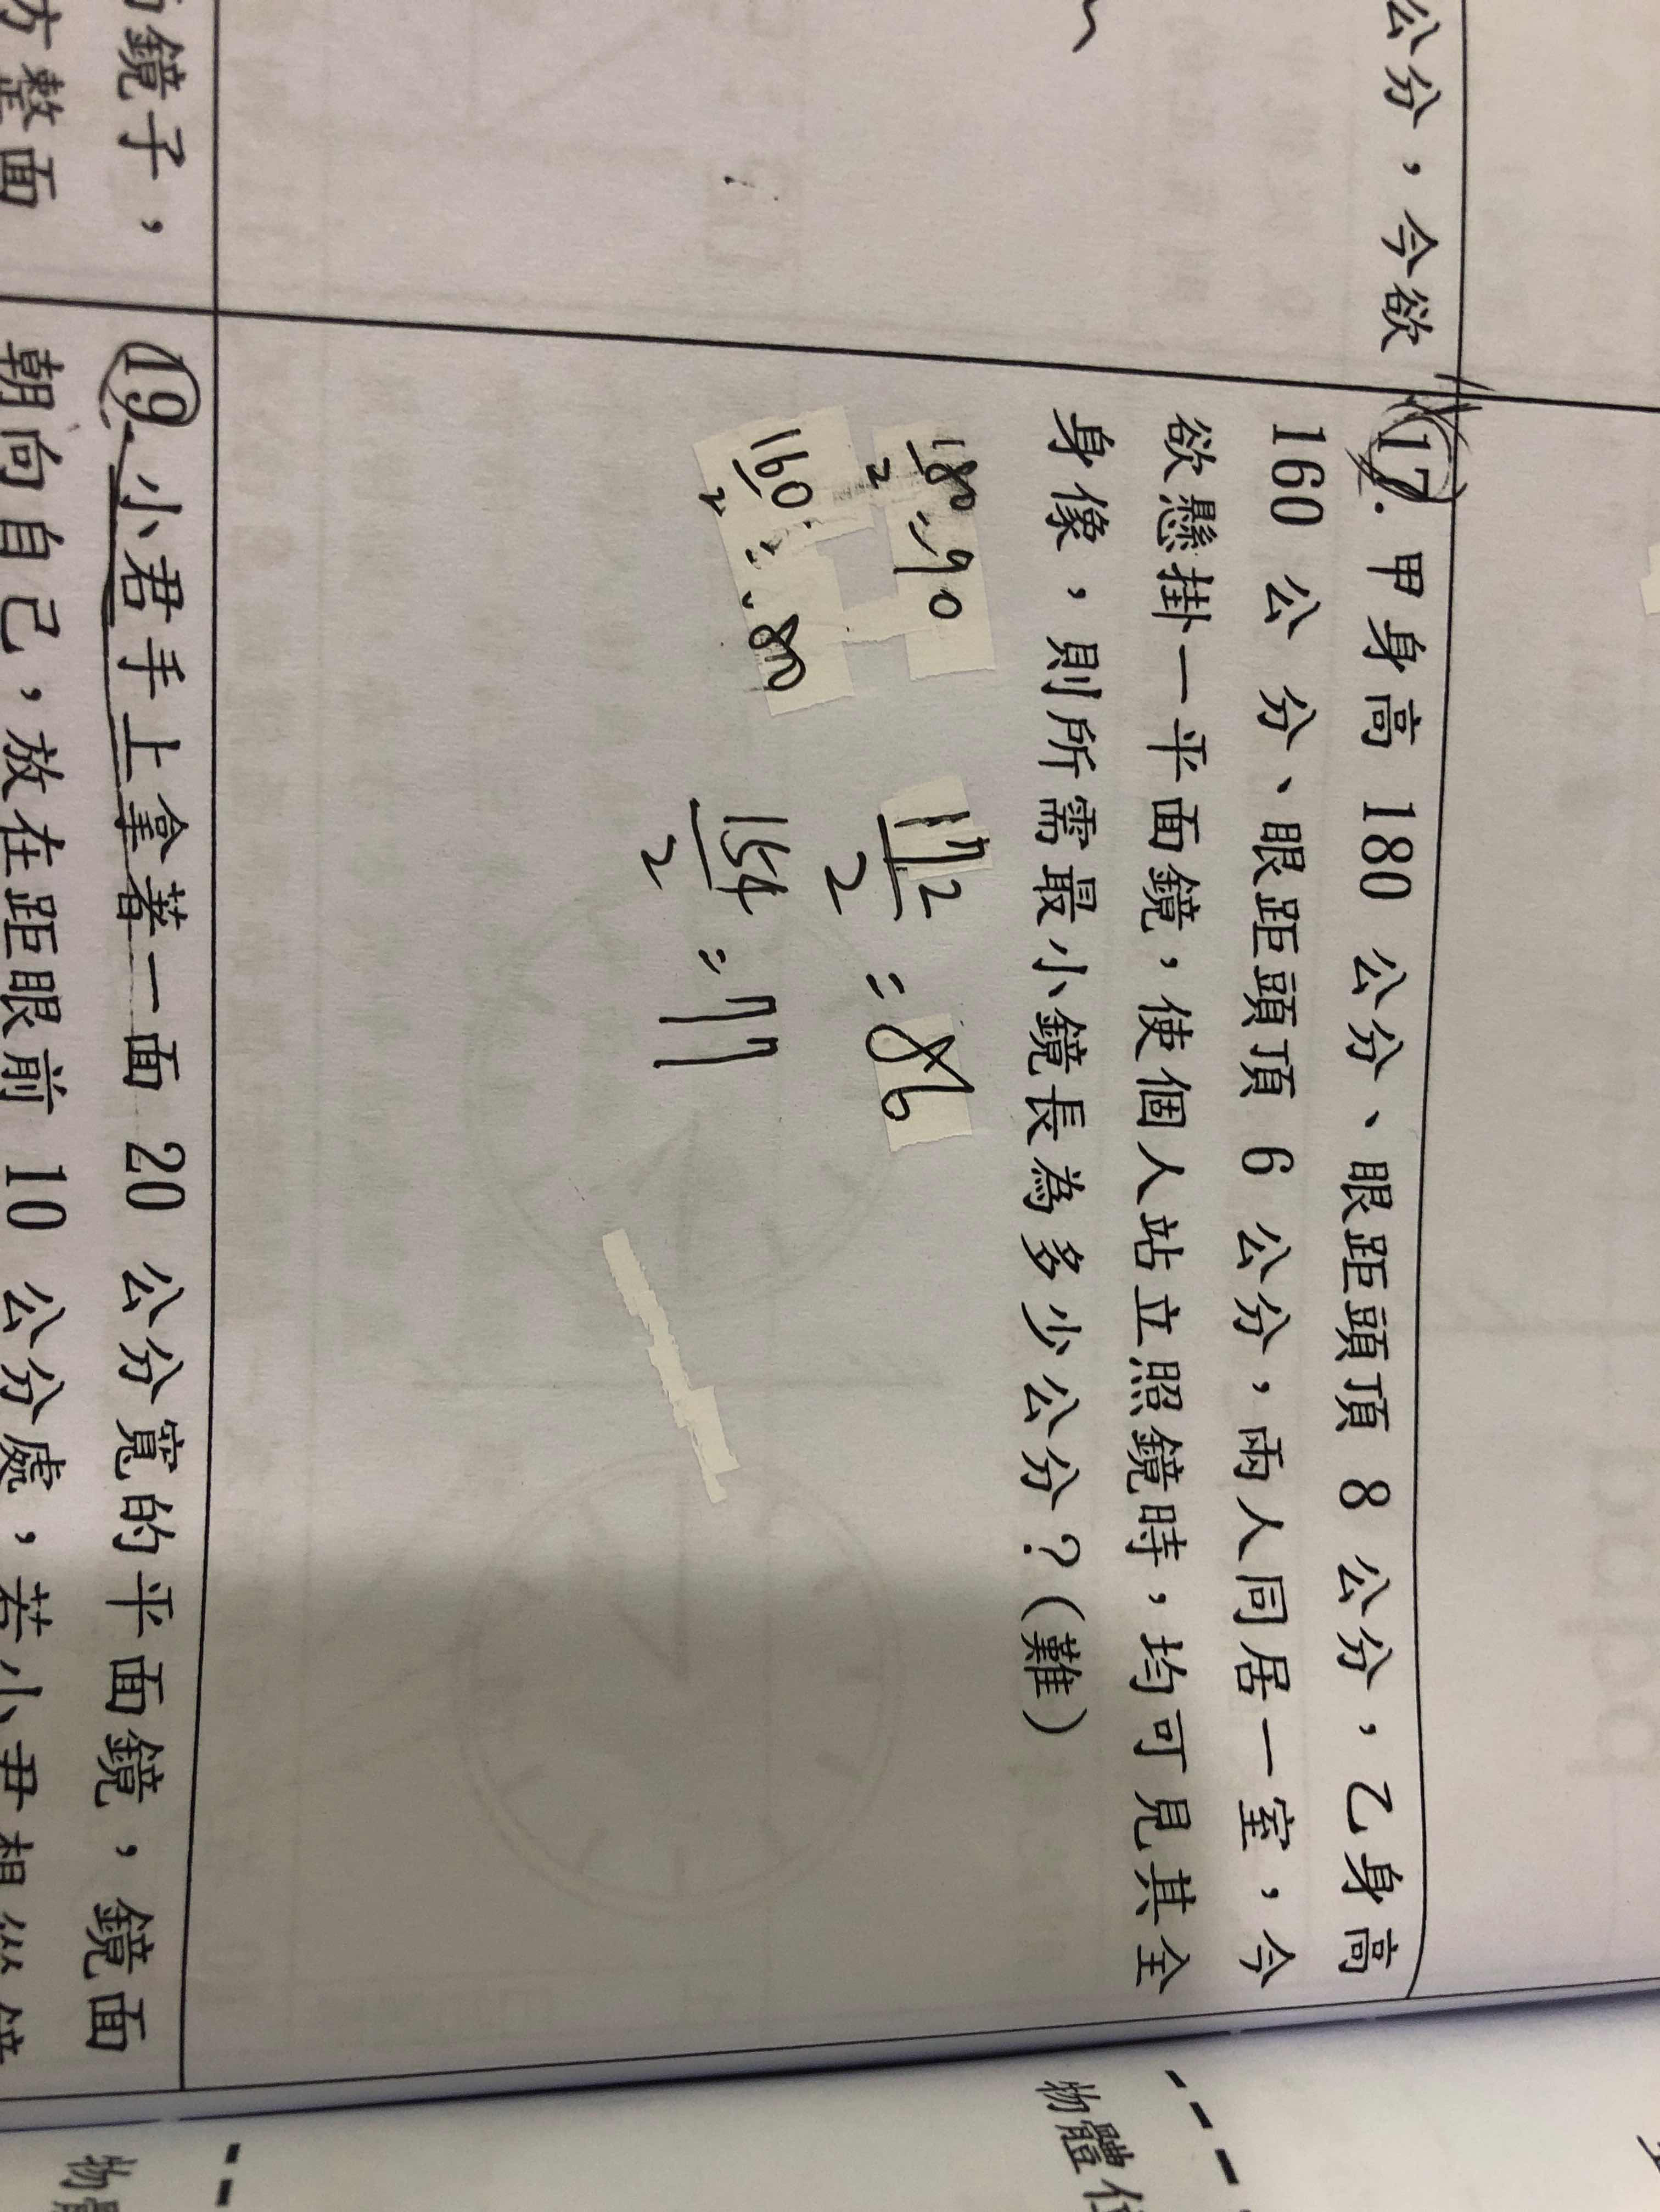 公分，今欲
17. 甲身高 180 公分、眼距頭頂 8 公分，乙身高
160 公分、眼距頭頂 6 公分，兩人同居一室，今
欲懸掛一平面鏡，使個人站立照鏡時，均可見其全
身像，則所需最小鏡長為多少公分？(難)
180/2 = 90
172/2 = 86
160/2 = 80
154/2 = 77
鏡子，
方整面
19. 小君手上拿著一面 20 公分寬的平面鏡，鏡面
朝向自己，放在距眼前 10 公分處，若小君想從鏡
物體位
物